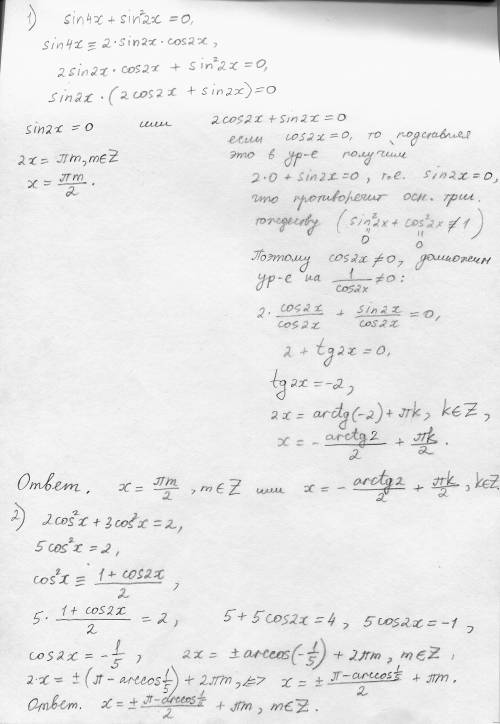 1) sin4x + sin²2x = 0,
sin4x ≡ 2·sin2x·cos2x,
2sin2x·cos2x + sin²2x = 0,
sin2x·(2cos2x + sin2x) = 0
sin2x = 0 или 2cos2x + sin2x = 0
2x = πm, m∈Z
x = πm/2.
если cos2x = 0, то подставляя
это в ур-е получим
2·0 + sin2x = 0, т.е. sin2x = 0,
что противоречит осн. триг.
тождеству (sin²2x + cos²2x ≠ 1)
" "
0 0
Поэтому cos2x ≠ 0, домножим
ур-е на 1/cos2x ≠ 0:
2·cos2x/cos2x + sin2x/cos2x = 0,
2 + tg2x = 0,
tg2x = -2,
2x = arctg(-2) + πk, k∈Z,
x = -arctg2/2 + πk/2.
Ответ. x = πm/2, m∈Z или x = -arctg2/2 + πk/2, k∈Z.
2) 2cos²x + 3cos²x = 2,
5cos²x = 2,
cos²x ≡ (1 + cos2x)/2,
5·(1 + cos2x)/2 = 2, 5 + 5cos2x = 4, 5cos2x = -1,
cos2x = -1/5, 2x = ±arccos(-1/5) + 2πm, m∈Z.
2·x = ±(π - arccos1/5) + 2πm, <=> x = ±(π - arccos1/5)/2 + πm.
Ответ. x = ±(π - arccos1/5)/2 + πm, m∈Z.